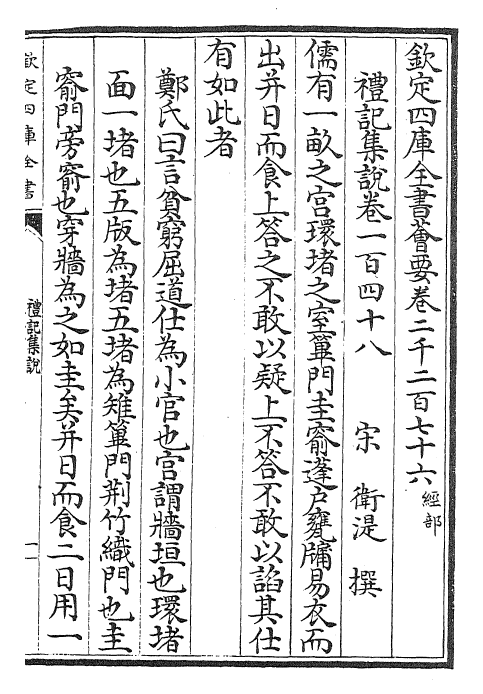 欽定四庫全書薈要卷二千二百七十六 經部
禮記集說卷一百四十八 宋 衛湜 撰
儒有一畝之宮環堵之室篳門圭窬蓬戶甕牖易衣而
出并日而食上答之不敢以疑上不答不敢以諂其仕
有如此者
鄭氏曰言貧窮屈道仕為小官也宮謂牆垣也環堵
面一堵也五版為堵五堵為雉篳門荆竹織門也圭
窬門旁窬也穿牆為之如圭矣并日而食二日用一
欽定四庫全書
禮記集說
一